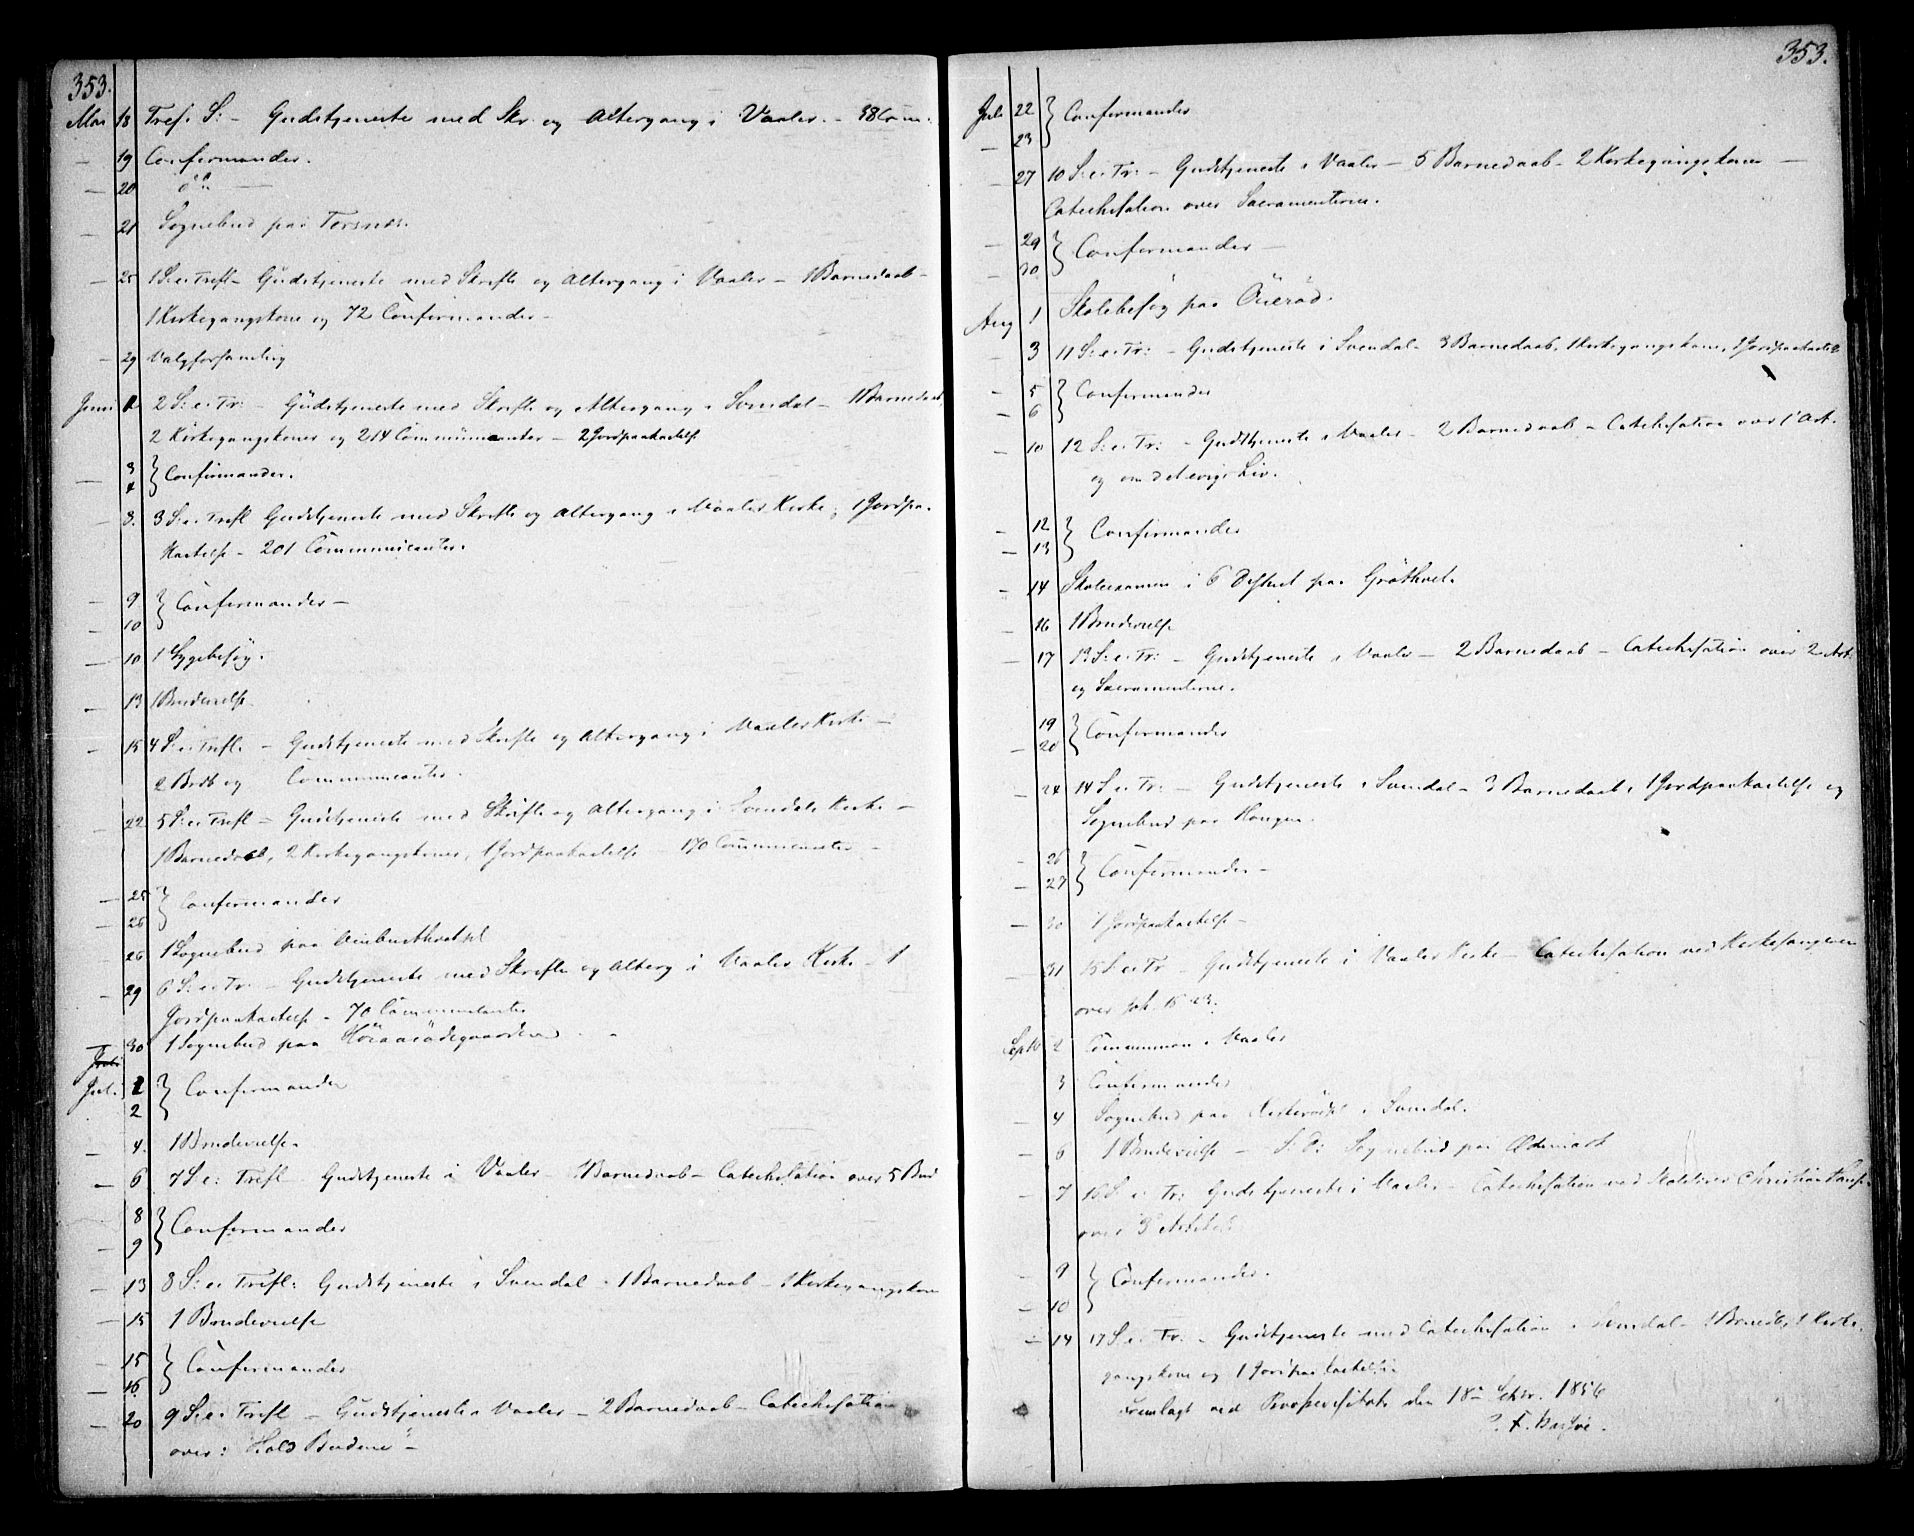 353.
Mai 18 Tref. S: - Gudstjeneste med Skr. og Altergang i Vaaler. - 38 Com.
- 19 Confirmander.
- 20 do
- 21 Sognebud paa Torsnæs.
- 25 1 S: e: Trefl - Gudstjeneste med Skrifte og Altergang i Vaaler - 1 Barnedaab -
1 Kirkegangskone og 72 Confirmander -
- 29 Valgforsamling
Juni 1 2 S: e: Tr: - Gudstjeneste med Skrifte og Altergang i Svendal - 1 Barnedaab,
2 Kirkegangskoner og 214 Communicanter - 2 Jordpaakastelse
3 } Confirmander.
- 4
- 8. 3 S: e: Trefl Gudstjeneste med Skrifte og Altergang i Vaaler Kirke, 1 Jordpaa-
kastelse - 201 Communicanter.
- 9 } Confirmander -
- 10
- 10 1 Sygebesøg.
- 13 1 Brudevielse.
- 15 4 S: e: Trefl. - Gudstjeneste med Skrifte og Altergang i Vaaler Kirke -
2 Brdb og Communicanter.
- 22 5 S: e: Trefl - Gudstjeneste med Skrifte og Altergang i Svendals Kirke -
1 Barnedaab, 2 Kirkegangskoner, 1 Jordpaakastelse - 170 Communicanter -
- 25 } Confirmander
- 26
26 1 Sognebud paa
- 29 6 S: e: Tr: - Gudstjeneste med Skrifte og Alterg i Vaaler Kirke - 1
Jordpaakastelse - 70 Communicanter
- 30 1 Sognebud paa
Juli 1 } Confirmander
2
- 4. 1 Brudevielse.
- 6 7 S e: Trefl Gudstjeneste i Vaaler - 1 Barnedaab - Catechisation over 5 Bud
8 } Confirmander
- 9
- 13 8 S: e: Trefl: Gudstjeneste i Svendal - 1 Barnedaab - 1 Kirkegangskone
- 15 1 Brudevielse
- 15 } Confirmander
- 16
- 20 9 S: e: Trefl - Gudstjeneste i Vaaler - 2 Barnedaab - Catechisation
over: "Hold Budene" -
353.
Juli 22 } Confirmander
- 23
- 27 10 S: e: Tr: - Gudstjeneste i Vaaler - 5 Barnedaab - 2 Kirkegangskoner -
Catechisation over Sacramenterne.
- 29 } Confirmander -
- 30
Aug 1 Skolebesøg paa
- 3 11 S: e: Tr: - Gudstjeneste i Svendal - 3 Barnedaab, 1 Kirkegangskone, 1 Jordpaakastelse
- 5 } Confirmander
- 6
- 10 12 S: e: Tr: - Gudstjeneste i Vaaler - 2 Barnedaab - Catechisation over 1 Art.
og om det evige Liv.
- 12 } Confirmander
- 13
- 14 Skoleexamen i 6 paa
- 16 1 Brudevielse
- 17 13 S: e: Tr: - Gudstjeneste i Vaaler - 2 Barnedaab - Catechisation over 2 Art:
og Sacramenterne.
19 } Confirmander
- 20
- 24 14 S e: Tr: - Gudstjeneste i Svendal - 3 Barnedaab, 1 Jordpaakastelse og
Sognebud paa Haugen.
- 26 } Confirmander -
- 27
- 30 1 Jordpaakastelse -
- 31 15 S: e: Tr - Gudstjeneste i Vaaler Kirke - Catechisation ved Kirkesangeren
over
Septb 2 Communion i Vaaler
3 Confirmander
- 4 Sognebud paa i Svendal.
- 6 1 Brudevielse - S: D: Sognebud paa Ødemark
- 7 16 S e: Tr: Gudstjeneste i Vaaler - Catechisation ved Christian
over 3 Artikel
- 9 } Confirmander.
- 10
- 14 17 S: e: Tr: - Gudstjeneste med Catechisation i Svendal - 1 Brnedb, 1 Kirke-
gangskone og 1 Jordpaakastelse
Fremlagt ved den 18de Septbr. 1856